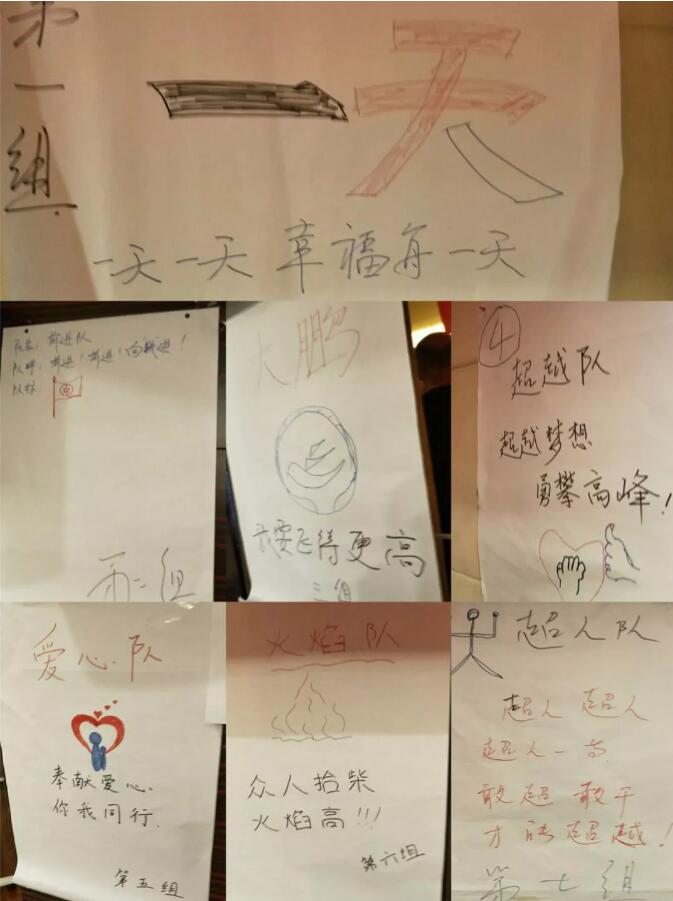 第一组
一天
一天一天 幸福每一天
队名：前进队
队呼：前进！前进！向前进！
队标：
第二组
大鹏
我要飞得更高
三组
④
超越队
超越梦想
勇攀高峰！
爱心队
奉献爱心
你我同行.
第五组
火焰队
众人拾柴
火焰高!!!
第六组
超人队
超人 超人
超人一等
敢超 敢干
才能超越！
第七组